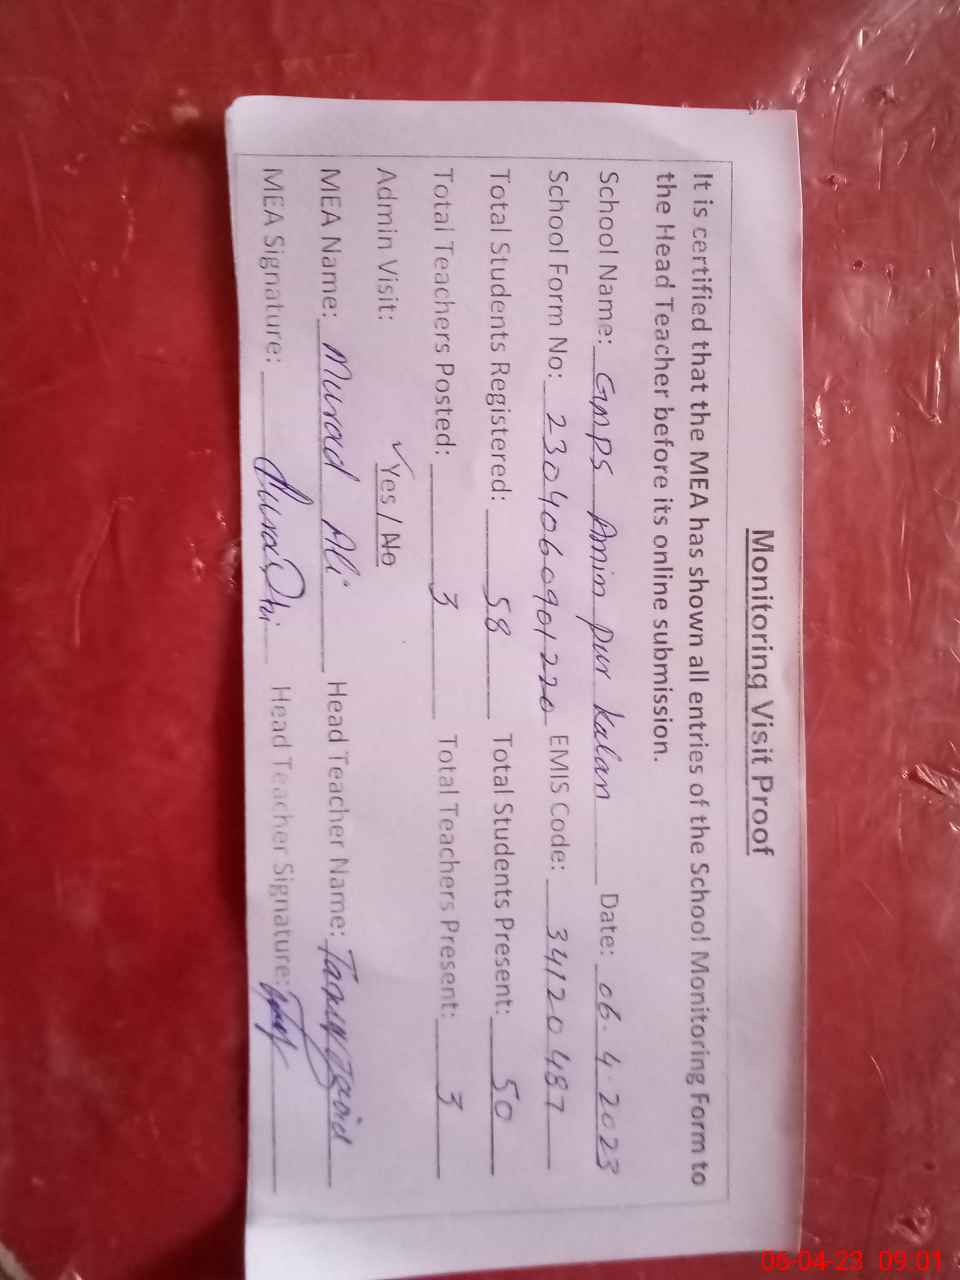 Monitoring Visit Proof
It is certified that the MEA has shown all entries of the School Monitoring Form to
the Head Teacher before its online submission.
School Name: GMPS Amin pur kalan Date: 06.4.2023
School Form No: 2304060901220 EMIS Code: 34120487
Total Students Registered: 58 Total Students Present: 50
Total Teachers Posted: 3 Total Teachers Present: 3
Admin Visit: ✓Yes / No
MEA Name: Murad Ali Head Teacher Name:
MEA Signature: Head Teacher Signature:
06-04-23 09:01